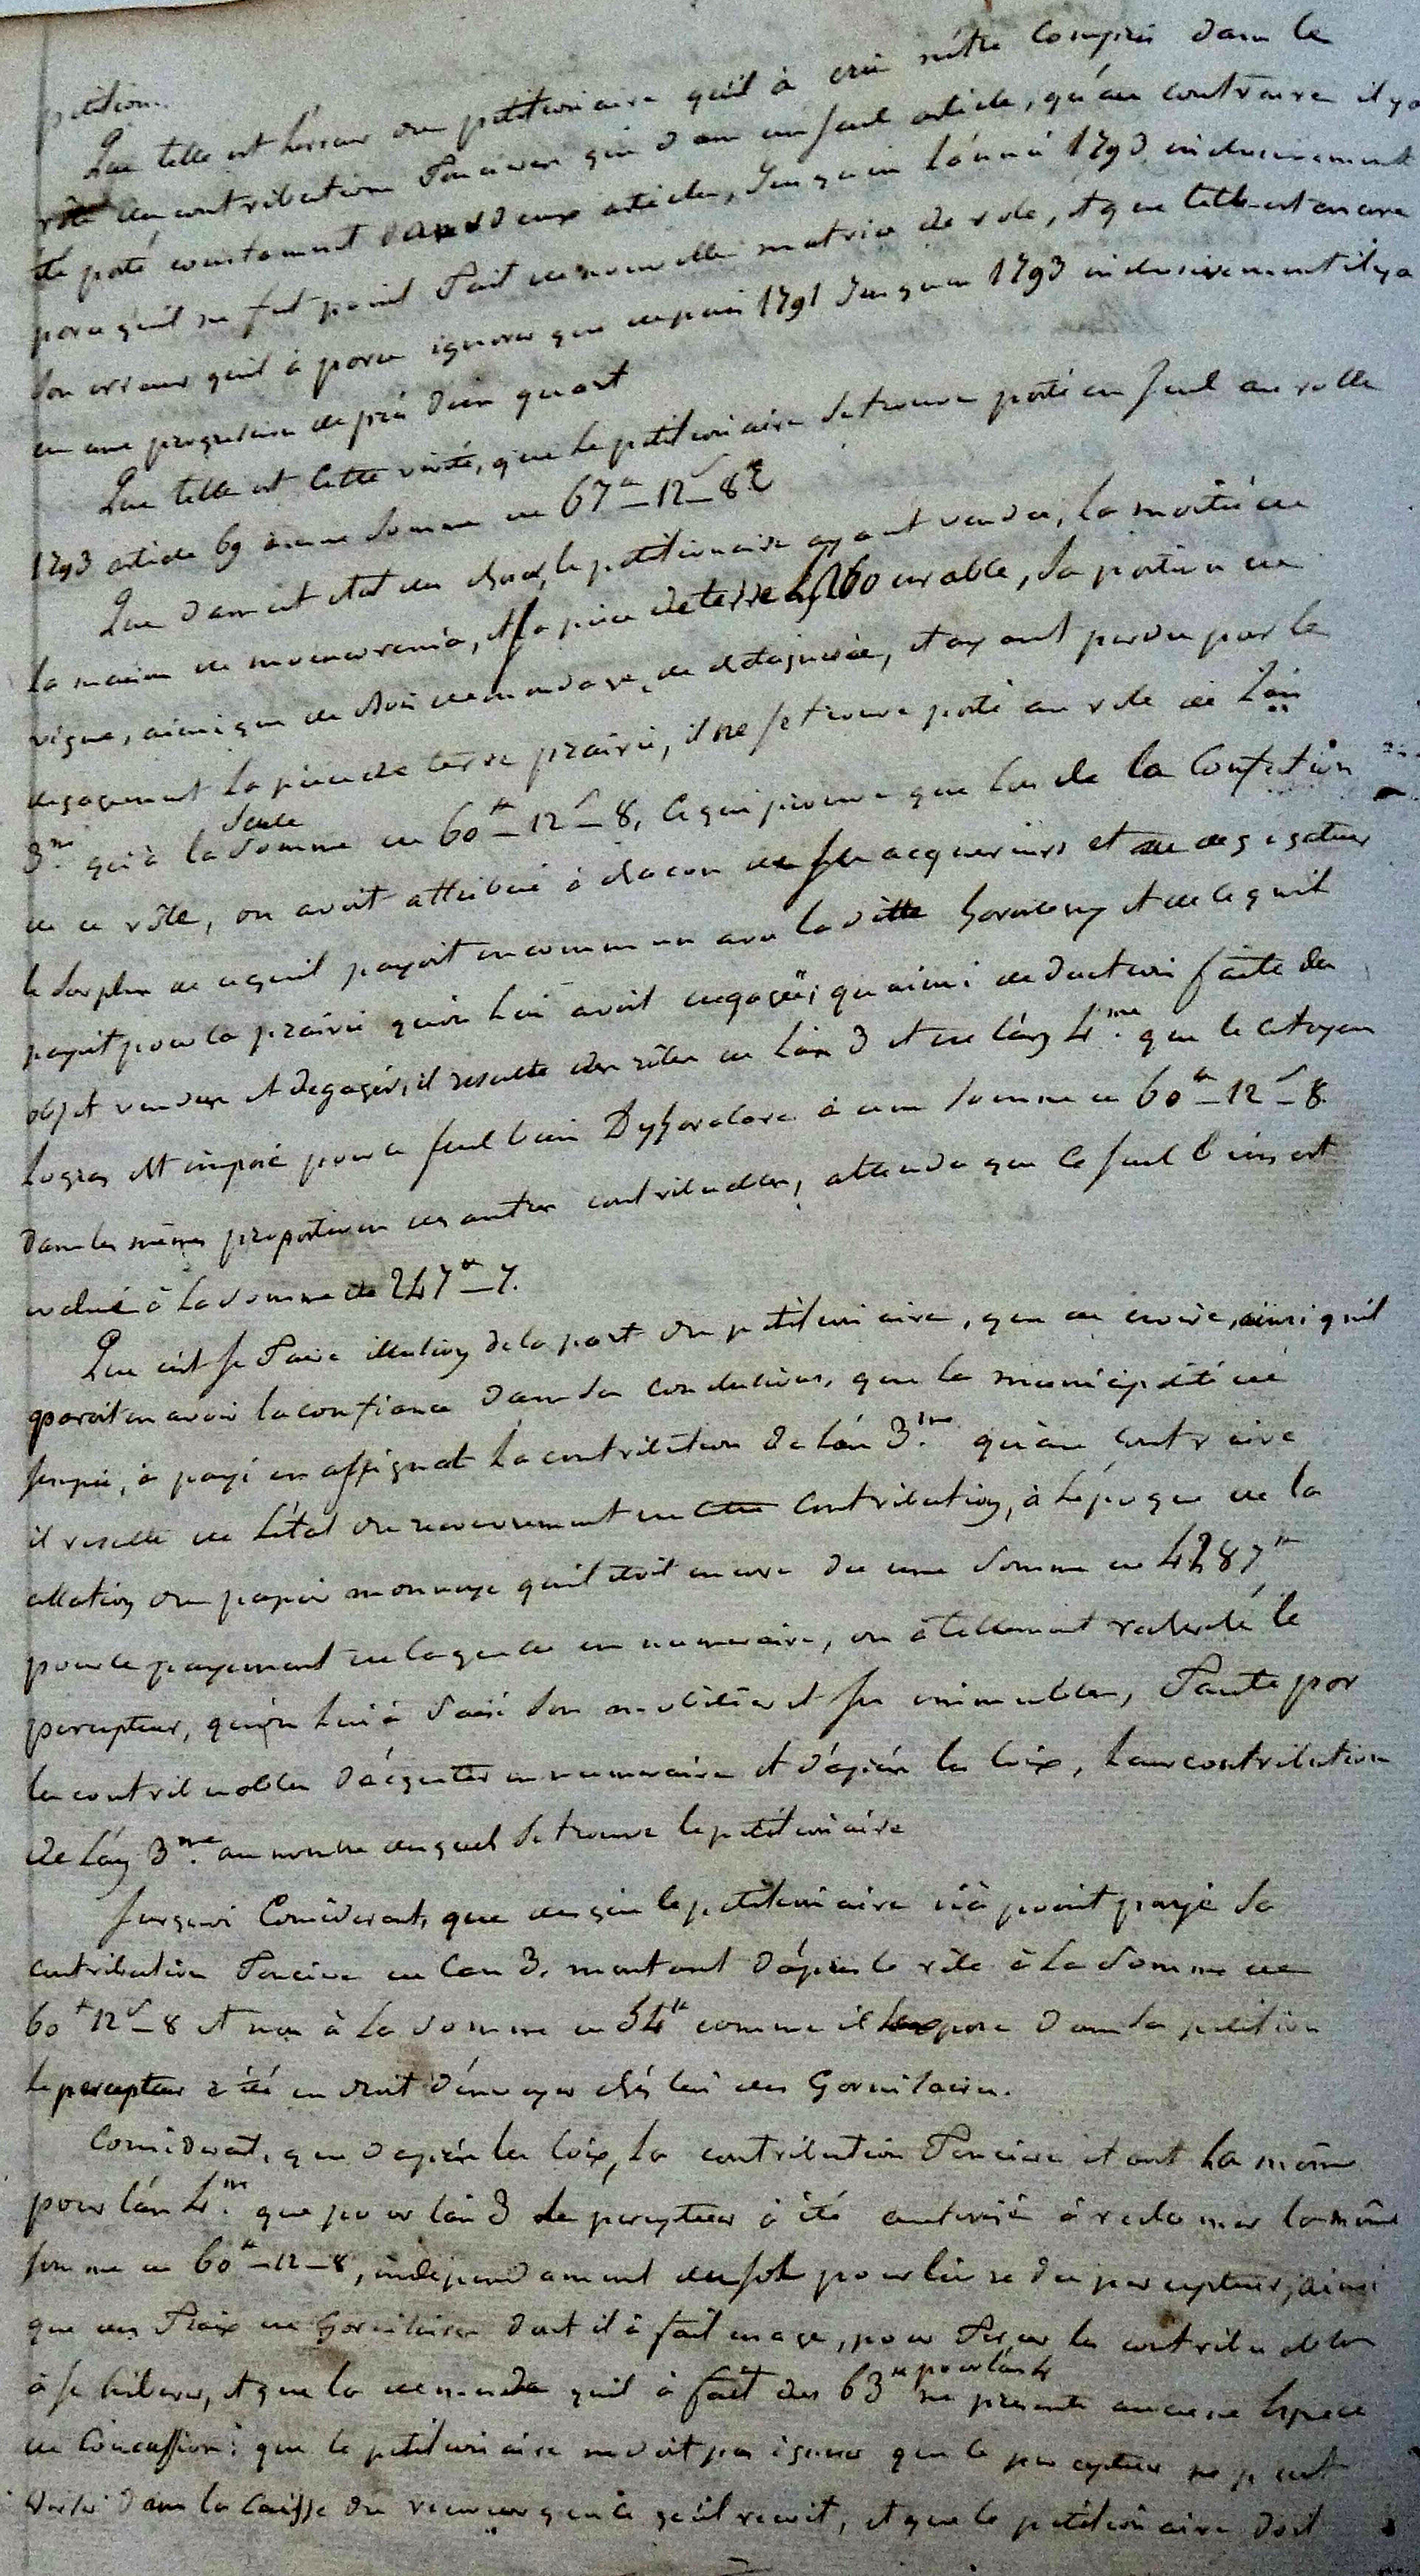 petition.
Que telle est l'erreur du petitionaire qu'il à crû n'être compris dans le
rôle des contribution Fonciere que dans un seul article, qu'au contraire il y a
été porté constament dans deux articles, Jusqu'en l'année 1793 inclusivement
parce qu'il ne fut point Fait de nouvelle matrice de role, et que telle est encore
son erreur qu'il à paru ignorer que depuis 1791 Jusqu'en 1793 inclusivement il y a
eu une progression de près d'un quart
Que telle est cette verité, que le petitionaire se trouve porté en seul au rolle
1793 article 69 à une somme de 67tt-12s-8d
Que dans cet etat des choses, le petitionaire ayant vendu, la moitié de
la maison de, et la piece de terre labourable, sa portion de
vigne, ainsi que de bois de, et ayant perdu par le
degagement la piece de terre prairie, il ne se trouve porté au role de l'an
3me. qu'à la seule somme de 60tt-12s-8, ce qui prouve que lors de la Confection
de ce rôle, on avoit attribué à chacun de ses acquereurs et au degagateur
le surplus de ce qu'il payoit en commun avec la ditte et de ce qu'il
payoit pour la prairie qu'on lui avoit degagée; qu'ainsi deduction faite des
objet vendus et degagés, il resulte des rôles de l'an 3 et de l'an 4me. que le citoyen
Logras est imposé pour le seul bien à une somme de 60tt-12s-8
Dans les mêmes proportions des autres contribuables, attendu que ce seul bien est
evalué à la somme de 247tt-7.
Que c'est se Faire illusion de la part du petitionaire, que de croire, ainsi qu'il
paroit en avoir la confiance dans ses conclusions, que la municipalité de
à payé en assignat la contribution de l'an 3me. qu'au contraire
il resulte de l'état du recouvrement de cette contribution, à l'époque de la
du papier monnoye qu'il étoit encore du une somme de 4287tt
pour le payement de laquelle en numeraire, on à tellement le
percepteur, qu'on lui à saisi son mobilier et ses immeubles, Faute par
les contribuables d'acquiter en numeraire et d'après les loix, leur contribution
de l'an 3me. au nombre desquels se trouve le petitionaire
Surquoi Considerant, que dès que le petitionaire n'à point payé sa
contribution Fonciere de l'an 3. montant d'après le rôle à la somme de
60tt 12s-8 et non à la somme de 54tt comme il l'expose dans sa petition
le percepteur a été en droit d'envoyer chés lui des Garnisaires.
Considerant, que d'après les loix, la contribution Fonciere etant la même
pour l'an 4me. que pour l'an 3 le percepteur à été autorisé à reclamer la même
somme de 60tt-12-8, independament des sols pour livre du percepteur, ainsi
que des Fraix de Garnisaires dont il à fait usage, pour Forcer les contribuables
à se liberer, et que la demande qu'il à fait des 63tt pour l'an 4 ne presente aucune espece
de Concussion; que le petitionaire ne doit pas ignorer que le percepteur ne peut
verser dans la Caisse du receveur que ce qu'il reçoit, et que le petitionaire doit